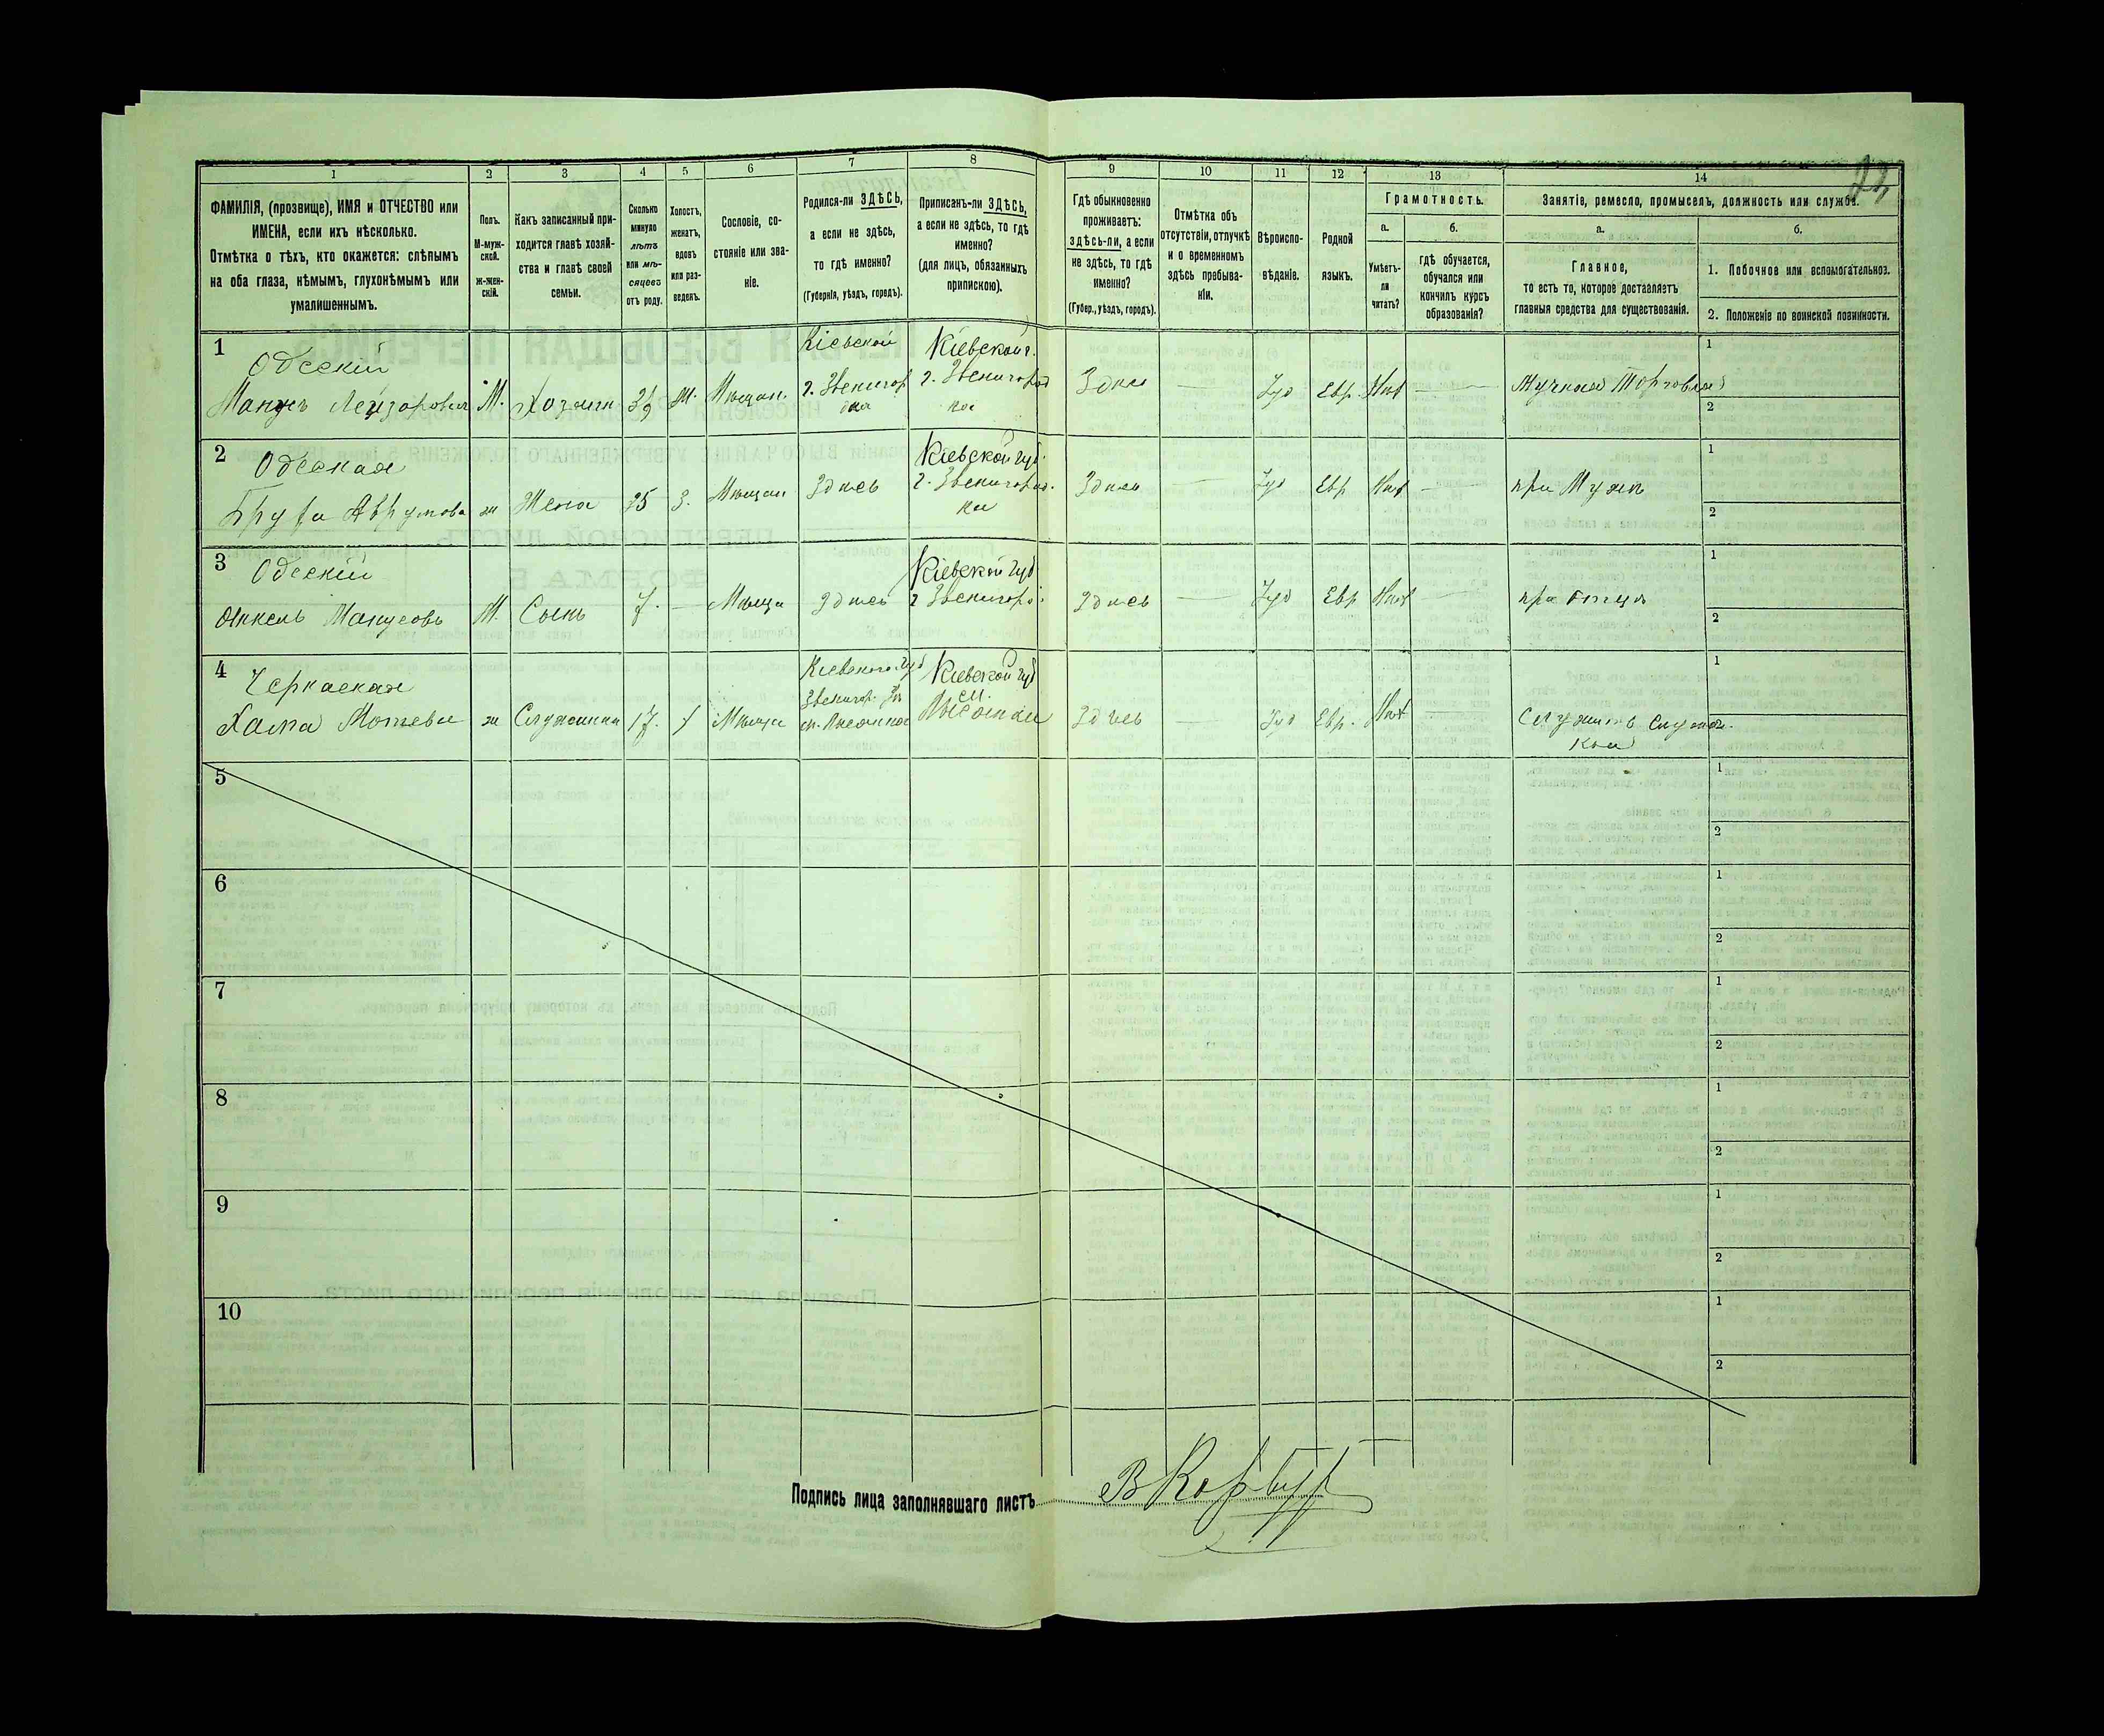 1 2 3 4 5 6 7 8 9 10 11 12 13 14
ФАМИЛІЯ, (прозвище), ИМЯ и ОТЧЕСТВО или
ИМЕНА, если ихъ нѣсколько.
Отмѣтка о тѣхъ, кто окажется: слѣпымъ
на оба глаза, нѣмымъ, глухонѣмымъ или
умалишеннымъ.
Полъ.
М-муж-
ской.
Ж-жен-
скій.
Какъ записанный при-
ходится главѣ хозяй-
ства и главѣ своей
семьи.
Сколько
минуло
лѣтъ
или мѣ-
сяцевъ
отъ роду.
Холостъ,
женатъ,
вдовъ
или раз-
веденъ.
Сословіе, со-
стояніе или зва-
ніе.
Родился-ли ЗДѢСЬ,
а если не здѣсь,
то гдѣ именно?
(Губернія, уѣздъ, городъ).
Приписанъ-ли ЗДѢСЬ,
а если не здѣсь, то гдѣ
именно?
(для лицъ, обязанныхъ
припискою).
Гдѣ обыкновенно
проживаетъ:
здѣсь-ли, а если
не здѣсь, то гдѣ
именно?
(Губер., уѣздъ, городъ).
Отмѣтка объ
отсутствіи, отлучкѣ
и о временномъ
здѣсь пребыва-
ніи.
Вѣроиспо-
вѣданіе.
Родной
языкъ.
Грамотность.
а.
Умѣетъ-
ли
читать?
б.
гдѣ обучается,
обучался или
кончилъ курсъ
образованія?
Занятіе, ремесло, промыселъ, должность или служба.
а.
Главное,
то есть то, которое доставляетъ
главныя средства для существованія.
б.
1. Побочное или вспомогательное.
2. Положеніе по воинской повинности.
1
Одескій
Манусъ Лейзоровъ
М.
Хозяинъ
Мѣщан.
Кіевской
г. Звенигор
одка
Кіевской г.
г. Звенигород
ка
Здѣсь
—
Іуд
Евр.
Нѣт
—
Мучная Торговля
1
2
2
Одеская
Аврумова
ж
Жена
25
З.
Мѣщан
Здѣсь
Кіевской губ.
г. Звенигород.
ка
Здѣсь
—
Іуд
Евр
Нѣт
—
при Мужѣ
1
2
3
Одескій
Янкель Манусовъ
М.
Сынъ
7.
—
Мѣща
Здѣсь
Кіевской губ
г Звенигор.
Здѣсь
—
Іуд
Евр
Нѣт
—
при отцѣ
1
2
4
Черкаская
Мотева
ж
Служанка
17.
Мѣща
Кіевской губ
Звенигор.
м. Лысянка
Кіевской губ
м.
Лысянки
Здѣсь
—
Іуд
Евр.
Нѣт
—
Служитъ служан.
кой
1
5
1
2
6
1
2
7
1
2
8
1
2
9
1
2
10
1
2
Подпись лица заполнявшаго листъ